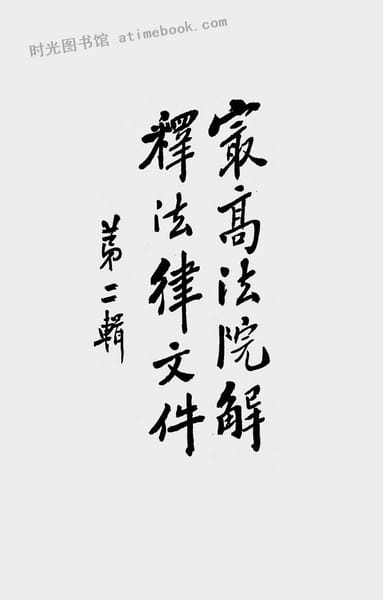 时光图书馆 atimebook.com
最高法院解
釋法律文件
第二輯